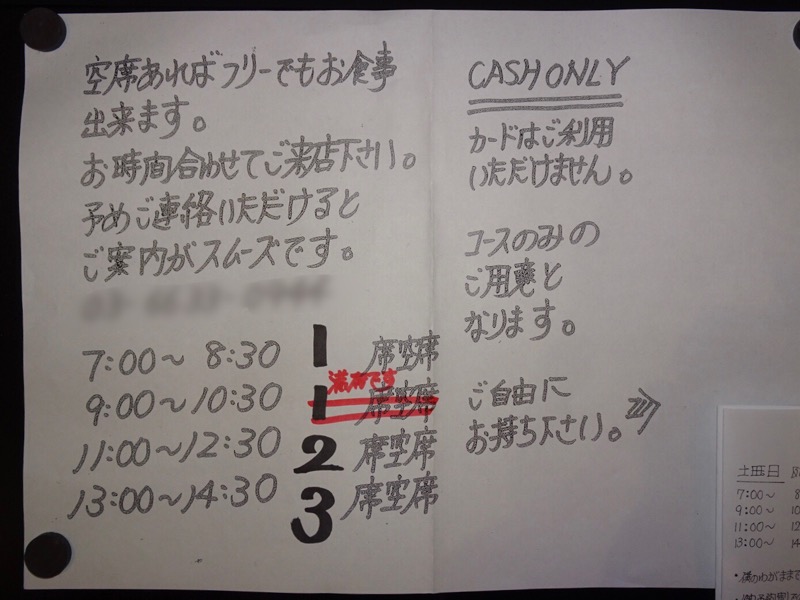 空席あればフリーでもお食事
出来ます。
お時間合わせてご来店下さい。
予めご連絡いただけると
ご案内がスムーズです。
7:00〜 8:30 1 席空席
満席です
9:00〜10:30 1 席空席
11:00〜12:30 2 席空席
13:00〜14:30 3 席空席
CASH ONLY
カードはご利用
いただけません。
コースのみの
ご用意と
なります。
ご自由に
お持ち下さい。
土曜日
7:00〜 8
9:00〜 10
11:00〜 12
13:00〜 14